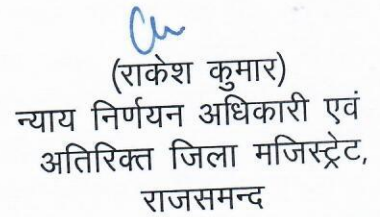 (राकेश कुमार)
न्याय निर्णयन अधिकारी एवं
अतिरिक्त जिला मजिस्ट्रेट,
राजसमन्द